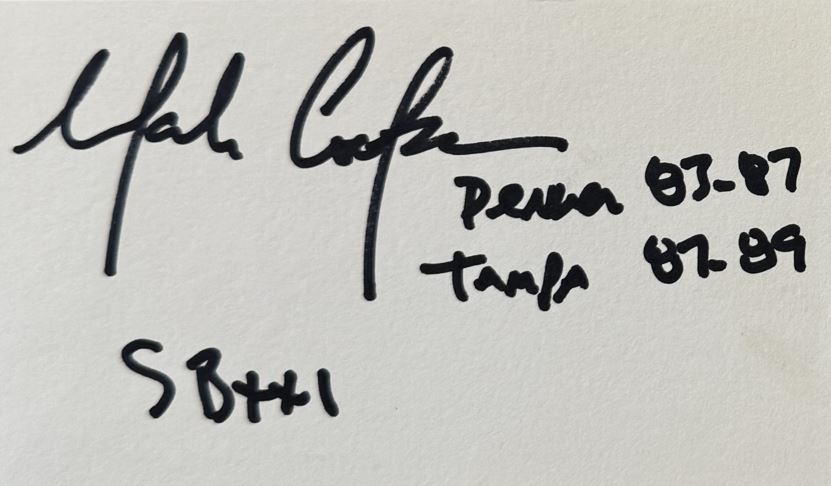 Mark Cooper
Denver 83-87
TAMPA 87-89
SBXXI